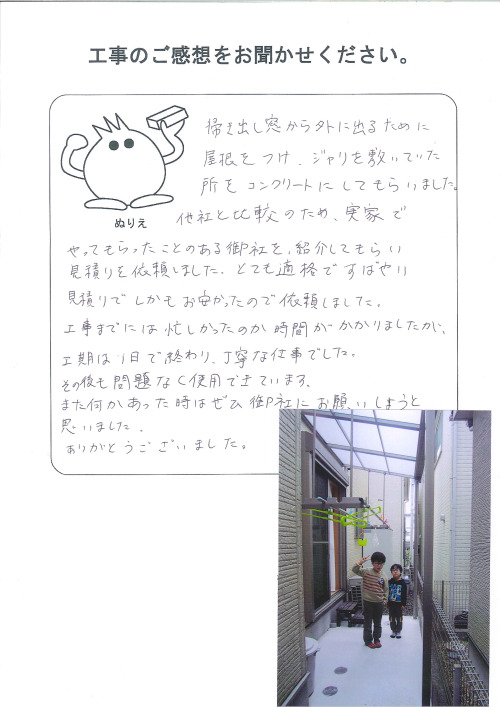 工事のご感想をお聞かせください。
ぬりえ
掃き出し窓から外に出るために
屋根をつけ、ジャリを敷いていた
所をコンクリートにしてもらいました。
他社と比較のため、実家で
やってもらったことのある御社を紹介してもらい
見積りを依頼しました。とても適格ですばやい
見積りでしかもお安かったので依頼しました。
工事までには忙しかったのか時間がかかりましたが、
工期は1日で終わり、丁寧な仕事でした。
その後も問題なく使用できています。
また何かあった時はぜひ御社にお願いしようと
思いました。
ありがとうございました。